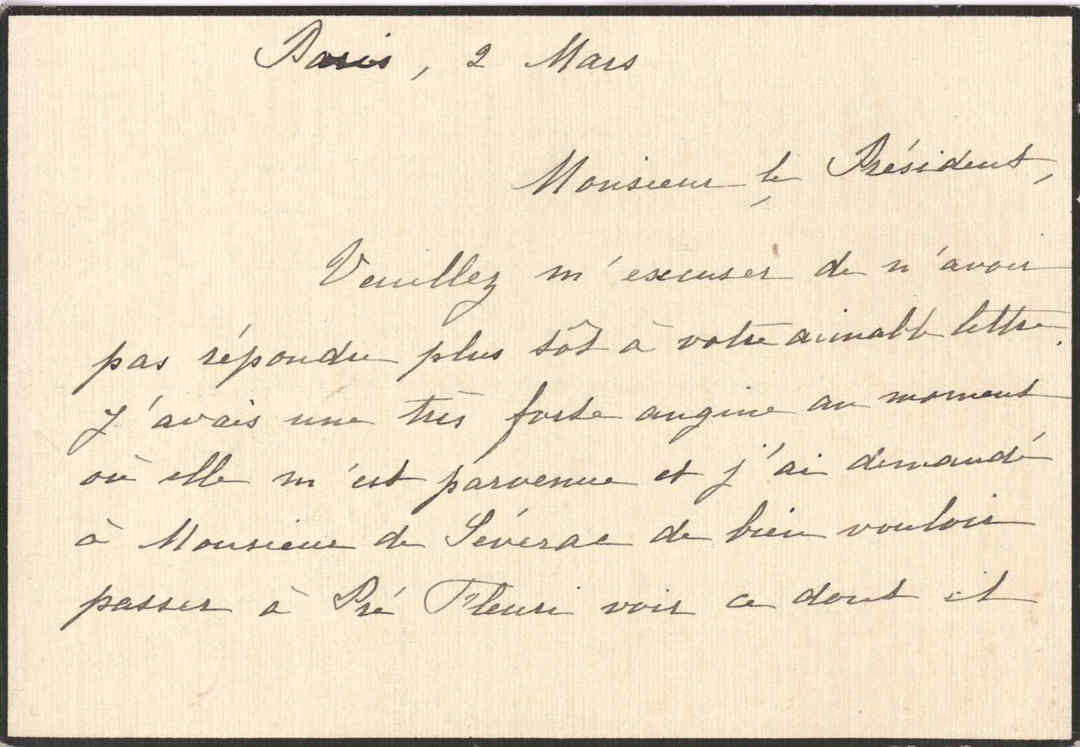 Paris, 2 Mars
Monsieur le Président,
Veuillez m'excuser de n'avoir
pas répondu plus tôt à votre aimable lettre.
J'avais une très forte angine au moment
où elle m'est parvenue et j'ai demandé
à Monsieur de Séverac de bien vouloir
passer à Pré Fleuri voir ce dont il